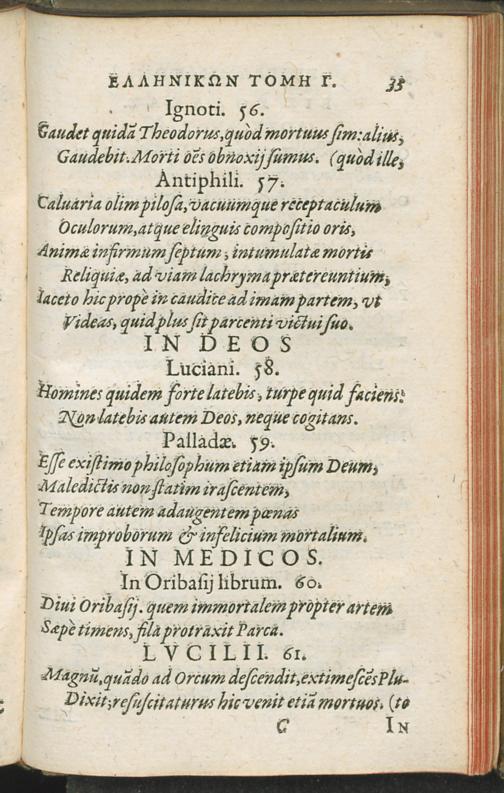 ΕΛΛΗΝΙΚΩΝ ΤΟΜΗ Γ. 35
Ignoti. 56.
Gaudet quidā Theodorus, quòd mortuus sim: alius,
Gaudebit. Morti oēs obnoxij sumus. (quòd ille,
Antiphili. 57.
Calvaria olim pilosa, vacuumque receptaculum
Oculorum, atque elinguis compositio oris,
Animæ infirmum septum, intumulatæ mortis
Reliquiæ, ad viam lachryma prætereuntium,
Iaceto hic prope in caudice ad imam partem, vt
Videas, quid plus sit parcenti victui suo.
IN DEOS
Luciani. 58.
Homines quidem forte latebis, turpe quid faciens:
Non latebis autem Deos, neque cogitans.
Palladæ. 59.
Esse existimo philosophum etiam ipsum Deum,
Maledictis non statim irascentem,
Tempore autem adaugentem pœnas
Ipsas improborum & infelicium mortalium.
IN MEDICOS.
In Oribasij librum. 60.
Divi Oribasij. quem immortalem propter artem
Sæpè timens, fila protraxit Parca.
LVCILII. 61.
Magnū, quādo ad Orcum descendit, extimescēs Plu-
Dixit; resuscitaturus hic venit etiā mortuos. (to
C IN